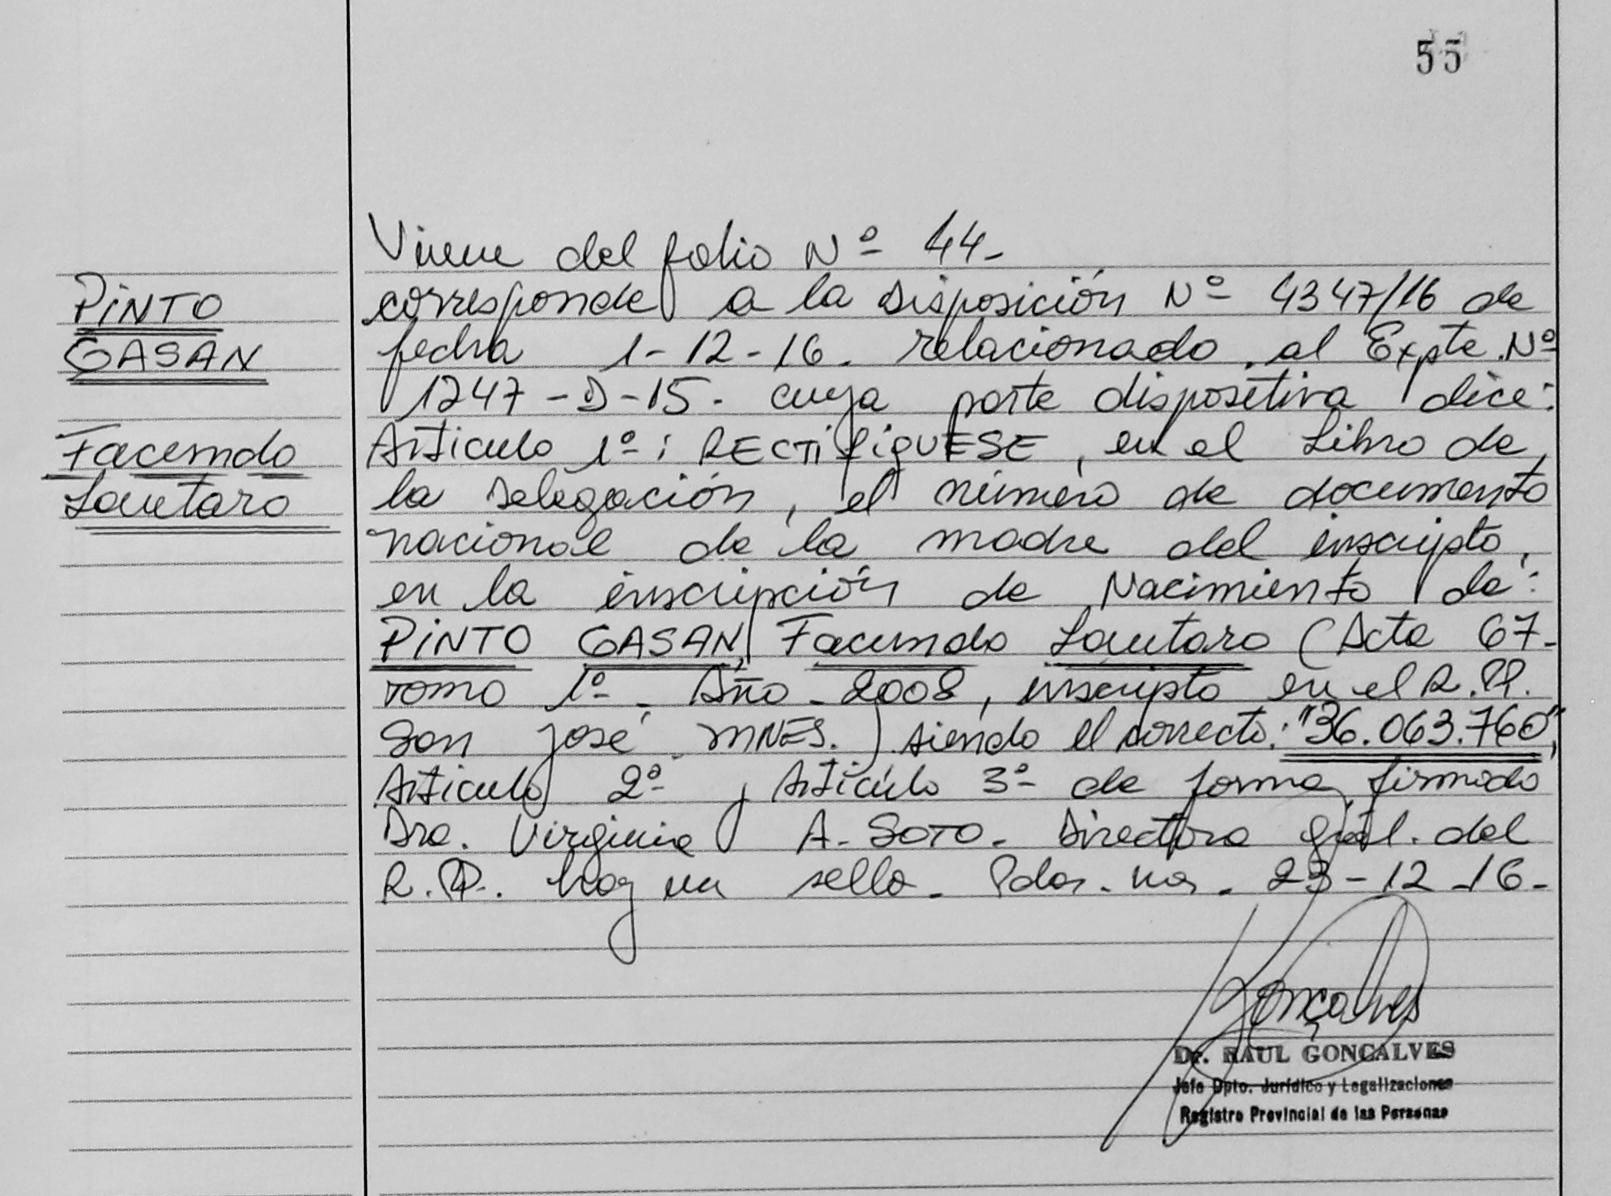 55
PINTO
GASAN
Facundo
Lautaro
Viene del folio Nº 44-
corresponde a la Disposición Nº 4347/16 de
fecha 1-12-16. relacionado al Expte. Nº
1247-D-15. cuya parte dispositiva dice:
Articulo 1º: RECTIFIQUESE, en el Libro de
la Delegación, el número de documento
nacional de la madre del inscripto,
en la inscripción de Nacimiento de:
PINTO GASAN, Facundo Lautaro (Acta 67-
Tomo 1º- Año-2008, inscripto en el R.P.
San José MNES.) siendo el correcto: "36.063.760",
Articulo 2º y Artículo 3º de forma, firmado
Dra. Virginia A. SOTO- Directora Gral. del
R.P. hay un sello. Pdas. Mnes. 23-12-16-
Gonçalves
Dr. RAUL GONCALVES
Jefe Dpto. Jurídico y Legalizaciones
Registro Provincial de las Personas